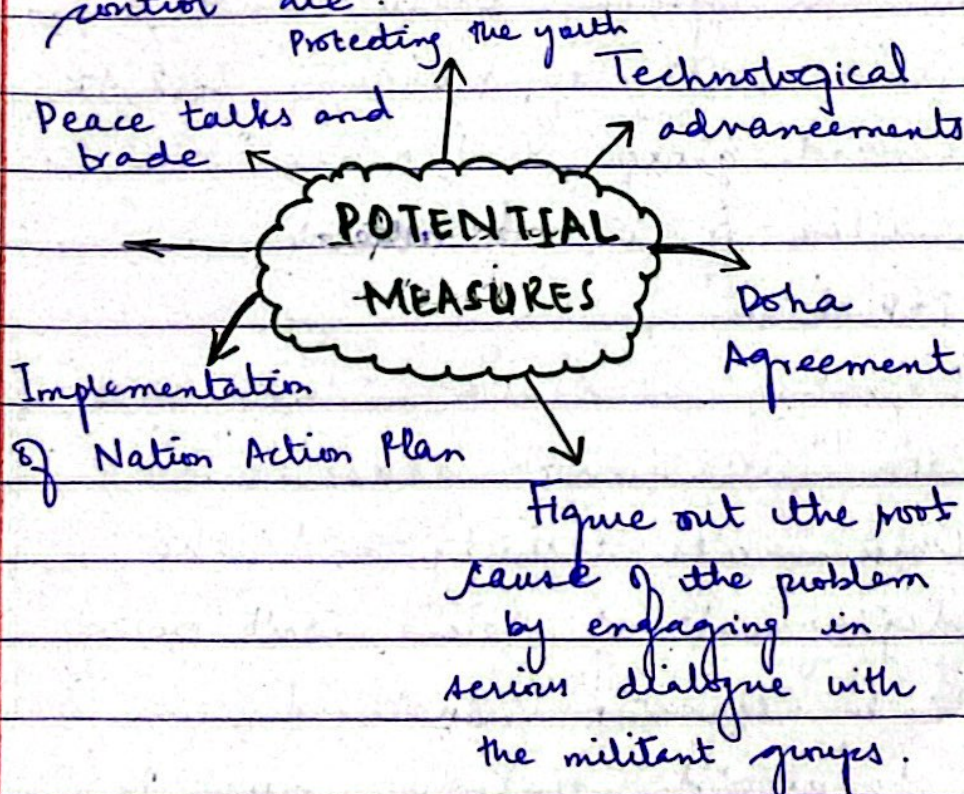 control are:
Protecting the youth
Technological
advancements
Peace talks and
trade
POTENTIAL
MEASURES
Doha
Agreement
Implementation
of Nation Action Plan
Figure out the root
cause of the problem
by engaging in
serious dialogue with
the militant groups.